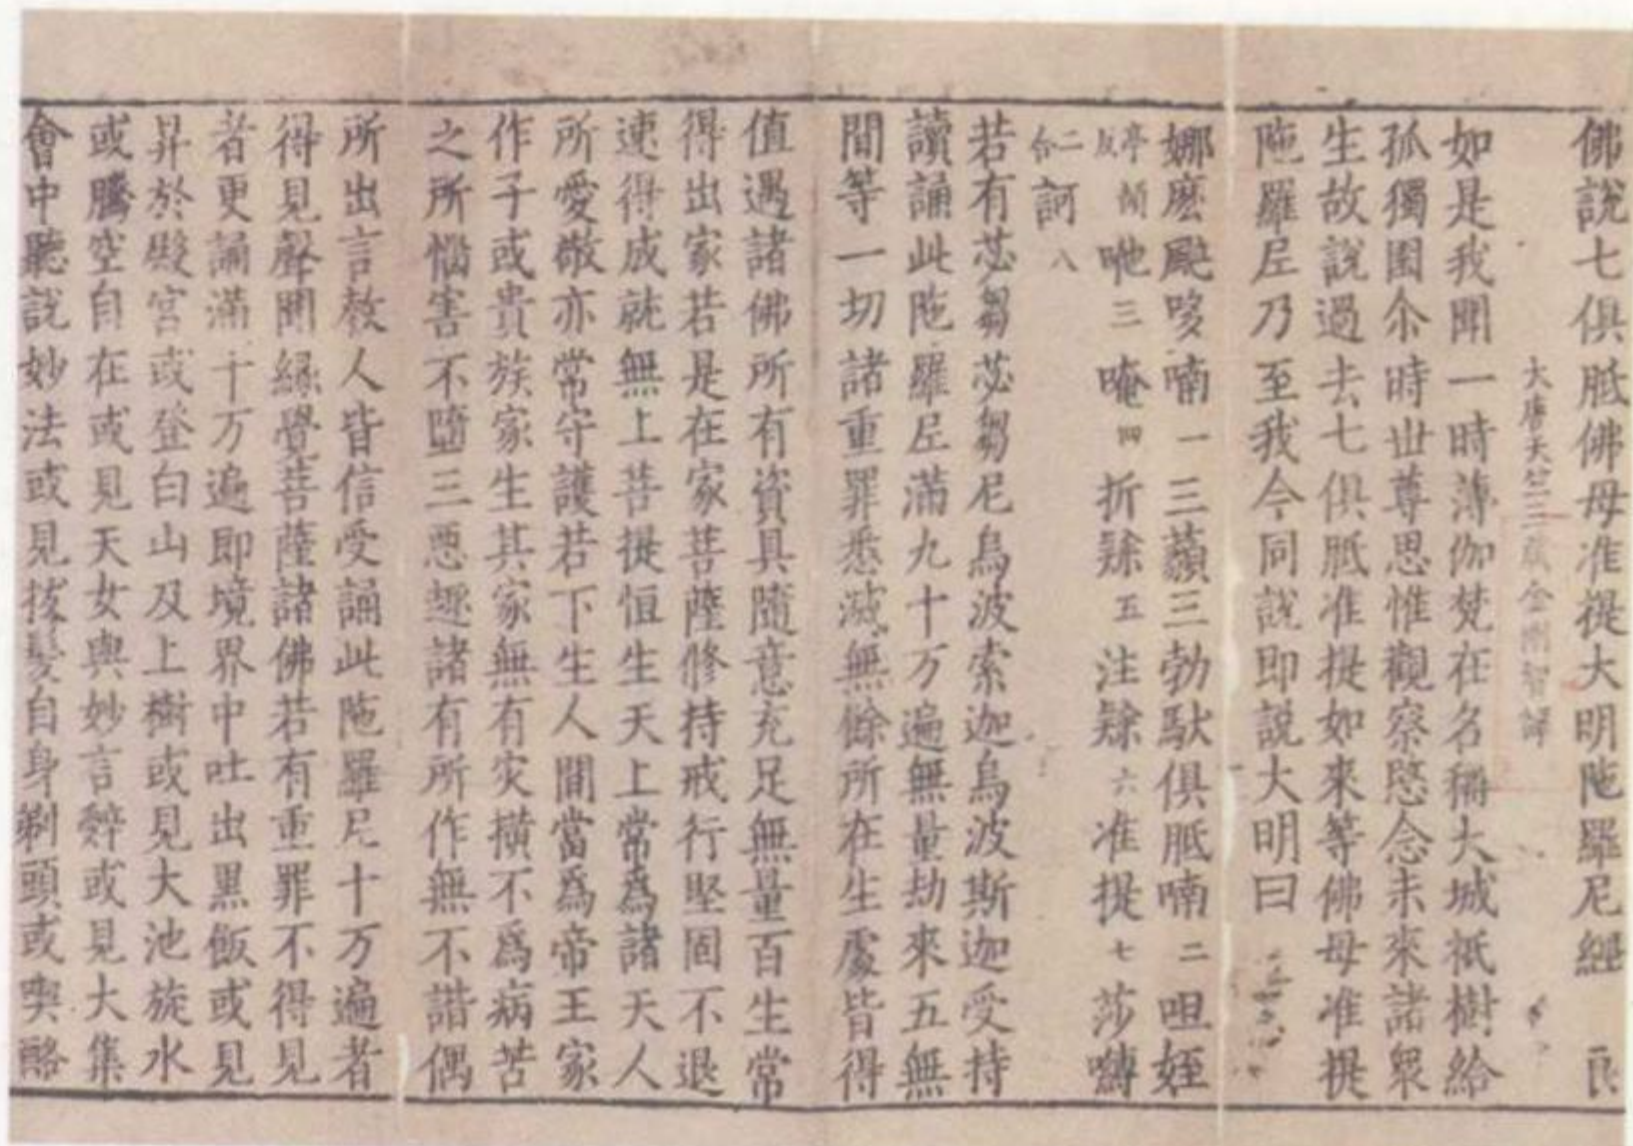 佛說七俱胝佛母准提大明陁羅尼經 良
大唐天竺三藏金剛智譯
如是我聞一時薄伽梵在名稱大城祇樹給
孤獨園尒時世尊思惟觀察愍念未來諸衆
生故說過去七俱胝准提如來等佛母准提
陁羅尼乃至我今同說即說大明曰
娜麼颯哆喃一三藐三勃馱俱胝喃二怛姪
亭夜反他三唵四折隸五注隸六准提七莎嚩
二合訶八
若有苾芻苾芻尼烏波索迦烏波斯迦受持
讀誦此陁羅尼滿九十万遍無量劫來五無
間等一切諸重罪悉滅無餘所在生處皆得
值遇諸佛所有資具隨意充足無量百生常
得出家若是在家菩薩修持戒行堅固不退
速得成就無上菩提恒生天上常爲諸天人
所愛敬亦常守護若下生人間當爲帝王家
作子或貴族家生其家無有灾橫不爲病苦
之所惱害不墮三惡趣諸有所作無不諧偶
所出言教人皆信受誦此陁羅尼十万遍者
得見聲聞緣覺菩薩諸佛若有重罪不得見
者更誦滿十万遍即境界中吐出黑飯或見
昇於殿宮或登白山及上樹或見大池旋水
或騰空自在或見天女與妙言辭或見大集
會中聽說妙法或見拔髮自身剃頭或喫酪